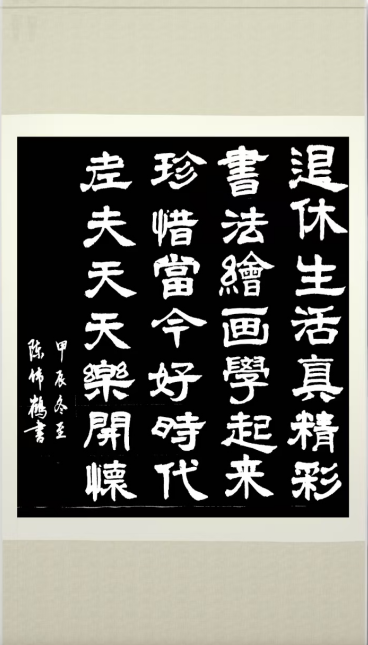 退休生活真精彩
書法繪画學起来
珍惜當今好時代
老夫天天樂開懷
甲辰冬至
陈伟鶴書